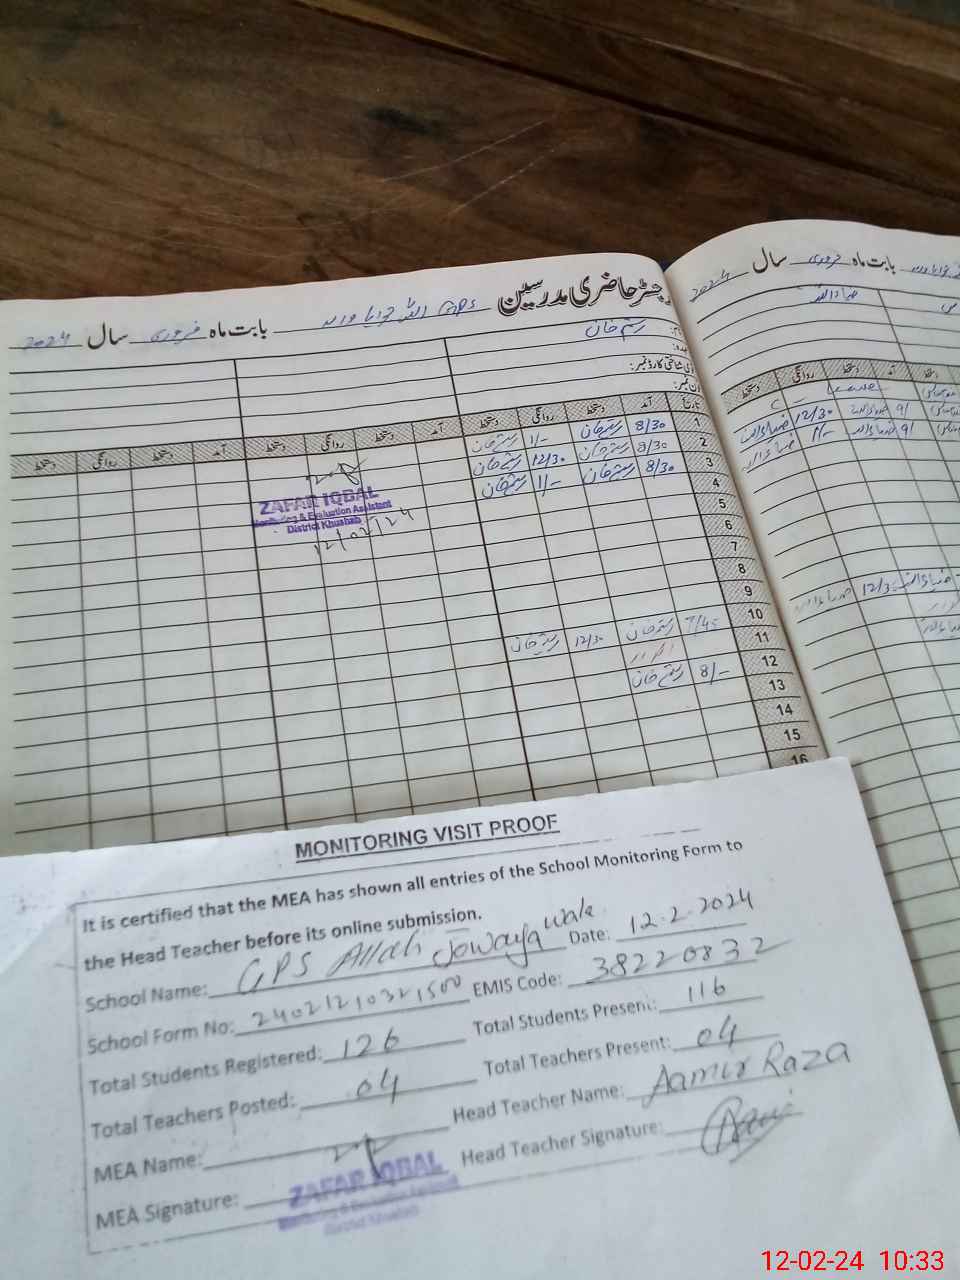 رجسٹر حاضری مدرسین GPS اللہ جوایا والا بابت ماہ فروری سال 2024
بابت ماہ فروری سال 2024
رستم خان
ضیاء اللہ
شناختی کارڈ نمبر:
تاریخ آمد دستخط روانگی دستخط آمد دستخط روانگی دستخط آمد دستخط روانگی دستخط
آمد دستخط روانگی دستخط
1 8/30 رستم خان 1/- رستم خان
2 8/30 رستم خان 12/30 رستم خان
3 8/30 رستم خان 1/- رستم خان
4
5
6
7
8
9
10 7/45 رستم خان 12/30 رستم خان
11 اتوار
12 8/- رستم خان
13
14
15
16
Leave
9/ ضیاء اللہ 12/30 ضیاء اللہ
9/ ضیاء اللہ 1/- ضیاء اللہ
ضیاء اللہ 12/30 ضیاء اللہ
ZAFAR IQBAL
Monitoring & Evaluation Assistant
District Khushab
12/02/24
MONITORING VISIT PROOF
It is certified that the MEA has shown all entries of the School Monitoring Form to
the Head Teacher before its online submission.
School Name: GPS Allah Jowaya Wala Date: 12.2.2024
School Form No: 24021210321500 EMIS Code: 38220832
Total Students Registered: 126 Total Students Present: 116
Total Teachers Posted: 04 Total Teachers Present: 04
MEA Name: Head Teacher Name: Aamir Raza
MEA Signature: Head Teacher Signature:
ZAFAR IQBAL
Monitoring & Evaluation Assistant
District Khushab
12-02-24 10:33